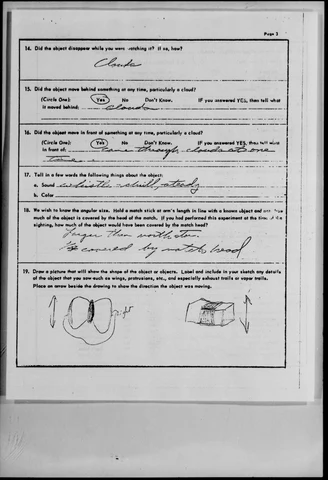 Page 3
14. Did the object disappear while you were watching it? If so, how?
Clouds
15. Did the object move behind something at any time, particularly a cloud?
(Circle One): Yes No Don't Know. IF you answered YES, then tell what
it moved behind: clouds
16. Did the object move in front of something at any time, particularly a cloud?
(Circle One): Yes No Don't Know. IF you answered YES, then tell what
in front of: came through clouds at one
time.
17. Tell in a few words the following things about the object:
a. Sound whistle - shrill, steady
b. Color
18. We wish to know the angular size. Hold a match stick at arm's length in line with a known object and note how
much of the object is covered by the head of the match. If you had performed this experiment at the time of the
sighting, how much of the object would have been covered by the match head?
larger than north star.
covered by match head
19. Draw a picture that will show the shape of the object or objects. Label and include in your sketch any details
of the object that you saw such as wings, protrusions, etc., and especially exhaust trails or vapor trails.
Place an arrow beside the drawing to show the direction the object was moving.